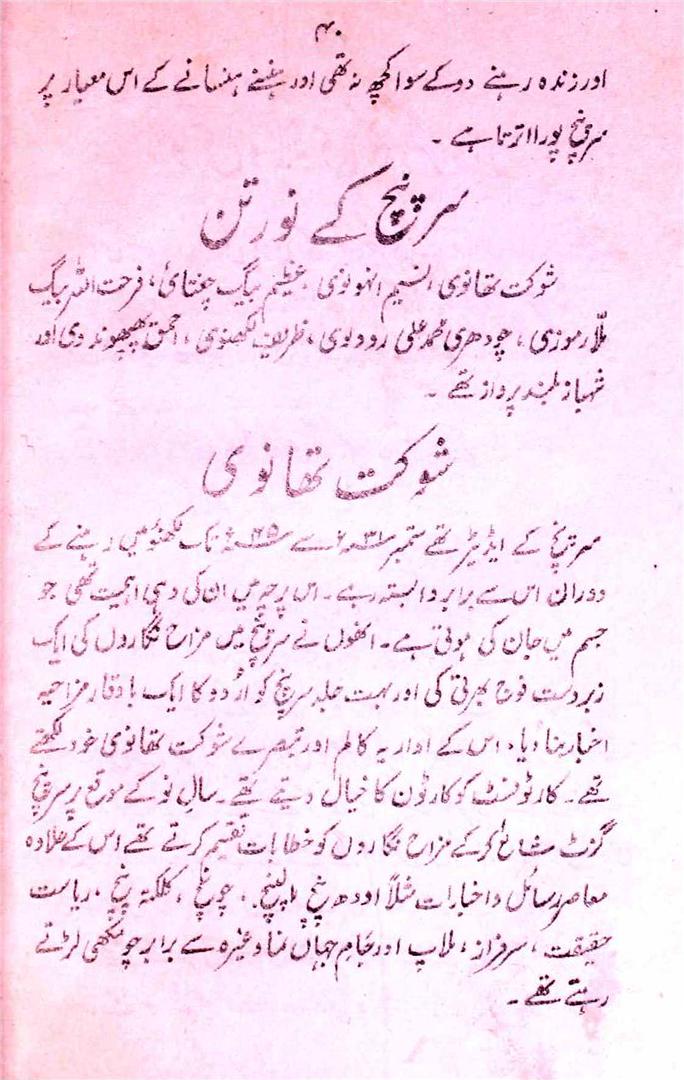 ۴۰
اور زندہ رہنے دو کے سوا کچھ نہ تھی اور ہنسنے ہنسانے کے اس معیار پر
سرپنچ پورا اترتا ہے ۔
سرپنچ کے نورتن
شوکت تھانوی، نسیم انہونوی، عظیم بیگ چغتائی، فرحت اللہ بیگ
ملّا رموزی، چودھری محمد علی رودولوی، ظریف لکھنوی، احمق پھپھوندوی اور
شہباز بلند پرواز تھے ۔
شوکت تھانوی
سرپنچ کے ایڈیٹر تھے ستمبر ۳۱ء سے ۳۵ء تک لکھنؤ میں رہنے کے
دوران اس سے برابر وابستہ رہے ۔ اس پرچہ میں ان کی وہی اہمیت تھی جو
جسم میں جان کی ہوتی ہے ۔ انھوں نے سرپنچ میں مزاح نگاروں کی ایک
زبردست فوج بھرتی کی اور بہت جلد سرپنچ کو اردو کا ایک باوقار مزاحیہ
اخبار بنا دیا، اس کے اداریہ کالم اور تبصرے شوکت تھانوی خود لکھتے
تھے ۔ کارٹونسٹ کو کارٹون کا خیال دیتے تھے ۔ سالِ نو کے موقع پر سرپنچ
گزٹ شائع کر کے مزاح نگاروں کو خطابات تقسیم کرتے تھے اس کے علاوہ
معاصر رسائل و اخبارات مثلاً اودھ پنچ، الپنچ، چونچ، کلکتہ پنچ، ریاست
حقیقت، سرفراز، ملاپ اور جامِ جہاں نما وغیرہ سے برابر چومکھی لڑتے
رہتے تھے ۔